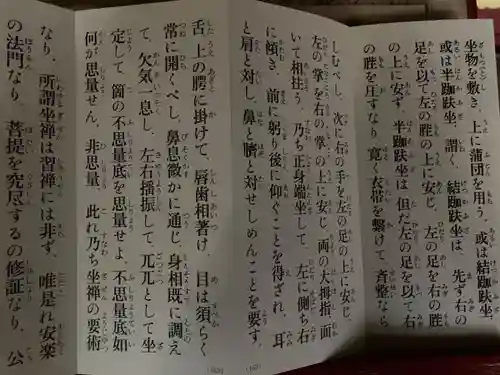 坐物を敷き、上に蒲団を用う。或は結跏趺坐、
或は半跏趺坐、謂く、結跏趺坐は、先ず右の
足を以て左の䏶の上に安じ、左の足を右の䏶
の上に安ず。半跏趺坐は但だ左の足を以て右
の䏶を圧すなり。寛く衣帯を繋けて、斉整なら
しむべし。次に右の手を左の足の上に安じ、
左の掌を右の掌の上に安じ、両の大拇指、面
いて相拄う。乃ち正身端坐して、左に側ち右
に傾き、前に躬り後に仰ぐことを得ざれ。耳
と肩と対し、鼻と臍と対せしめんことを要す。
舌、上の腭に掛けて、唇歯相著け、目は須らく
常に開くべし。鼻息微かに通じ、身相既に調え
て、欠気一息し、左右揺振して、兀兀として坐
定して、箇の不思量底を思量せよ。不思量底如
何が思量せん。非思量。此れ乃ち坐禅の要術
なり。所謂坐禅は習禅には非ず。唯是れ安楽
の法門なり。菩提を究尽するの修証なり。公